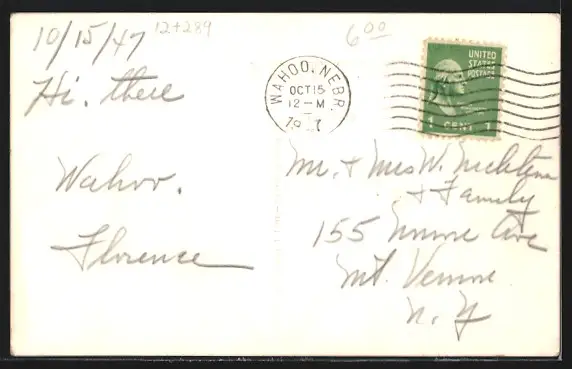 10/15/47
12+289
6.00
Hi. there
Wahoo.
Florence
WAHOO, NEBR.
OCT 15
12-M
UNITED
STATES
POSTAGE
1 CENT 1
Mr. & Mrs W.
& Family
155 Ave
Mt. Vernon
N. Y